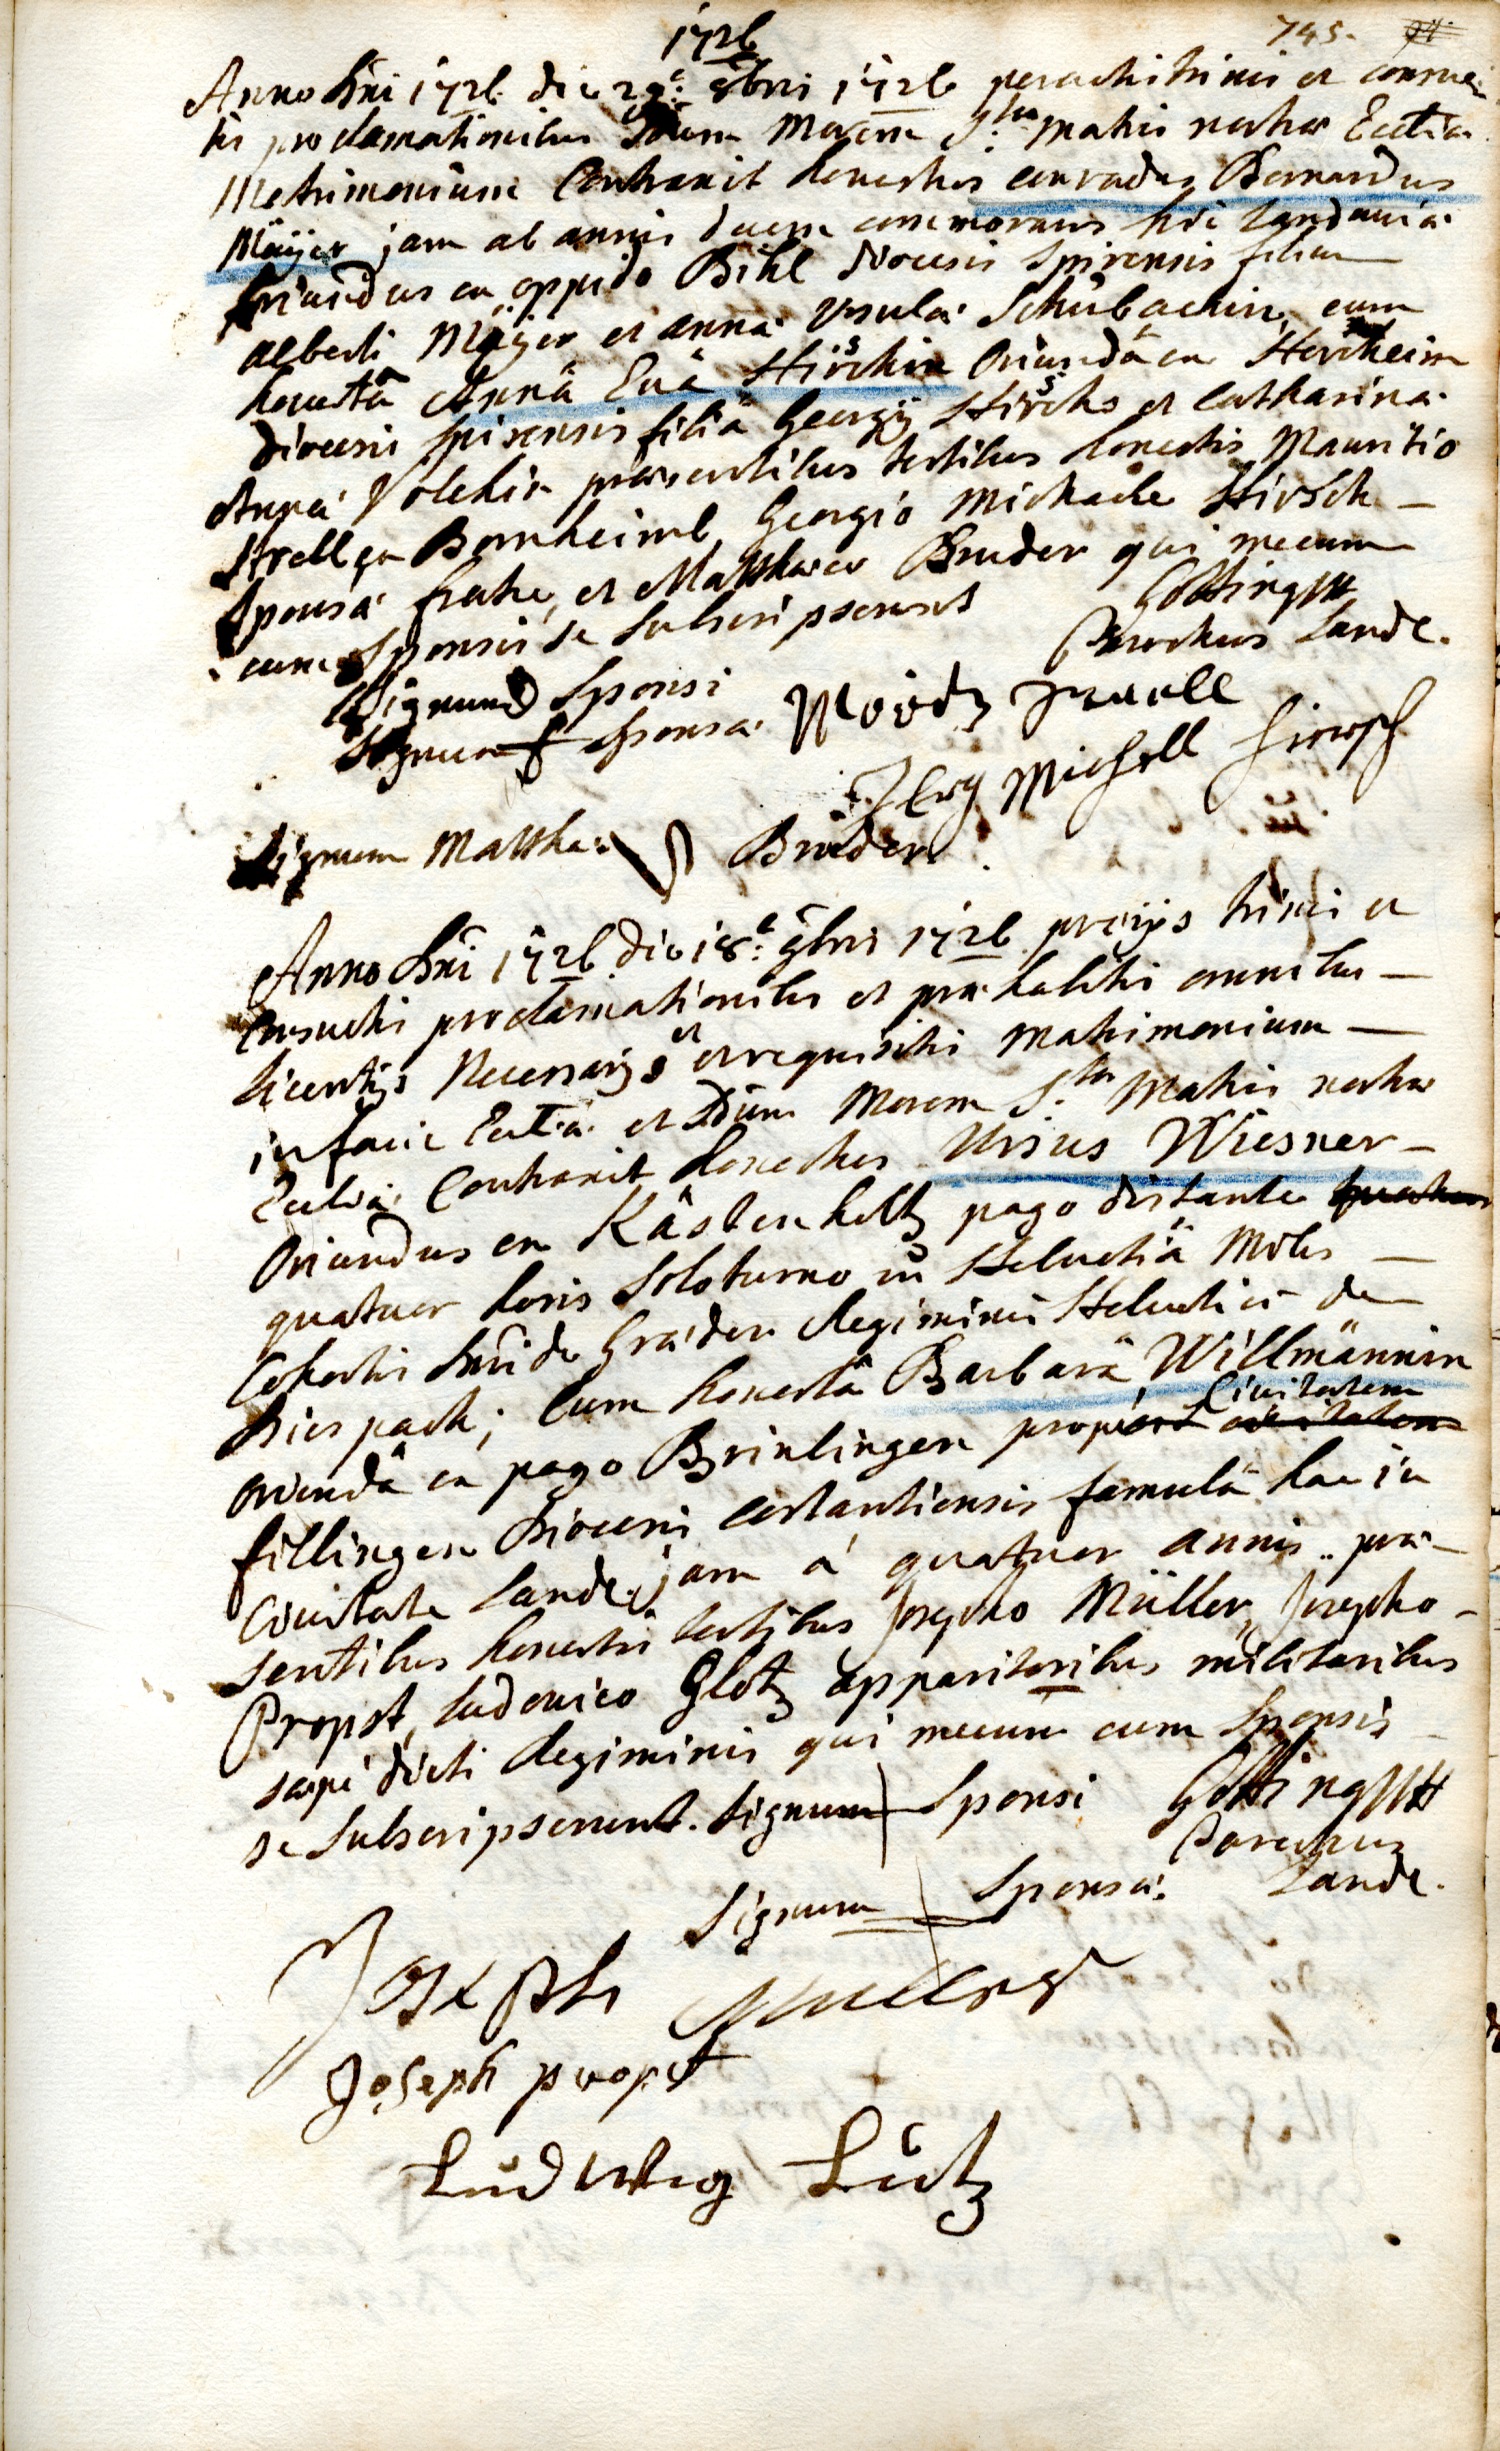 1726
745.
Anno Dni 1726 die 29.e 8bris 1726 peractis trinis et consue-
tis proclamationibus Sdum Morem S.tae Matris nostrae Ecclia
Matrimonium Contraxit honestus conradus Bernardus
Mäyer jam ab annis duem commorans hic Landaviae
Oriundus ex oppido Bihl diocesis Spirensis filius
alberti Mäyer et anna Ursula Schübachin, cum
honestâ Annâ Evâ Hirschin Oriundâ ex Herxheim
diocesis Spirensis filiâ Georgÿ Hirschs et Catharina
Anna Volckin praesentibus testibus honestis Mauritio
Strell ex Bornheimb, Georgio Michaele Hirsch –
Sponsae fratre, et Matthaeo Bruder qui mecum
cum Sponsis se Subscripserunt
Götting
Parochus Land.
Signum Sponsi
Signum Sponsae
Moritz
Jerg Michell Hirsch
Signum Matthaei Bruder
Anno Dni 1726 die 18.e 9bris 1726 praeviis trinis et
Consuetis proclamationibus et prae habitis omnibus –
licentÿs Necessarÿs et requisitis Matrimonium –
in facie Ecclia et Sdum Morem S.tae Matris nostrae
Ecclia Contraxit honestus Ursus Wiesner –
Oriundus ex Kästenholtz pago distante
quatuor horis Soloturno in Helvetiâ Miles –
Cohortis Dni de Graider Regiminis Helvetici de
Diespach; Cum honestâ Barbarâ Willmännin
oriundâ ex pago Brinlingen prope Civitatem
fillingen Diocesis constantiensis famulâ hac in
Civitate Land. jam à quatuor annis prae-
sentibus honestis testibus Josepho Müller, Josepho –
Propst, Ludovico Glotz apparitoribus militaribus
saepe dicti Regiminis qui mecum cum Sponsis
se Subscripserunt. Signum Sponsi
Götting
Parochus
Land.
Signum Sponsae
Joseph Mullerr
Joseph propst
Ludwig Lutz